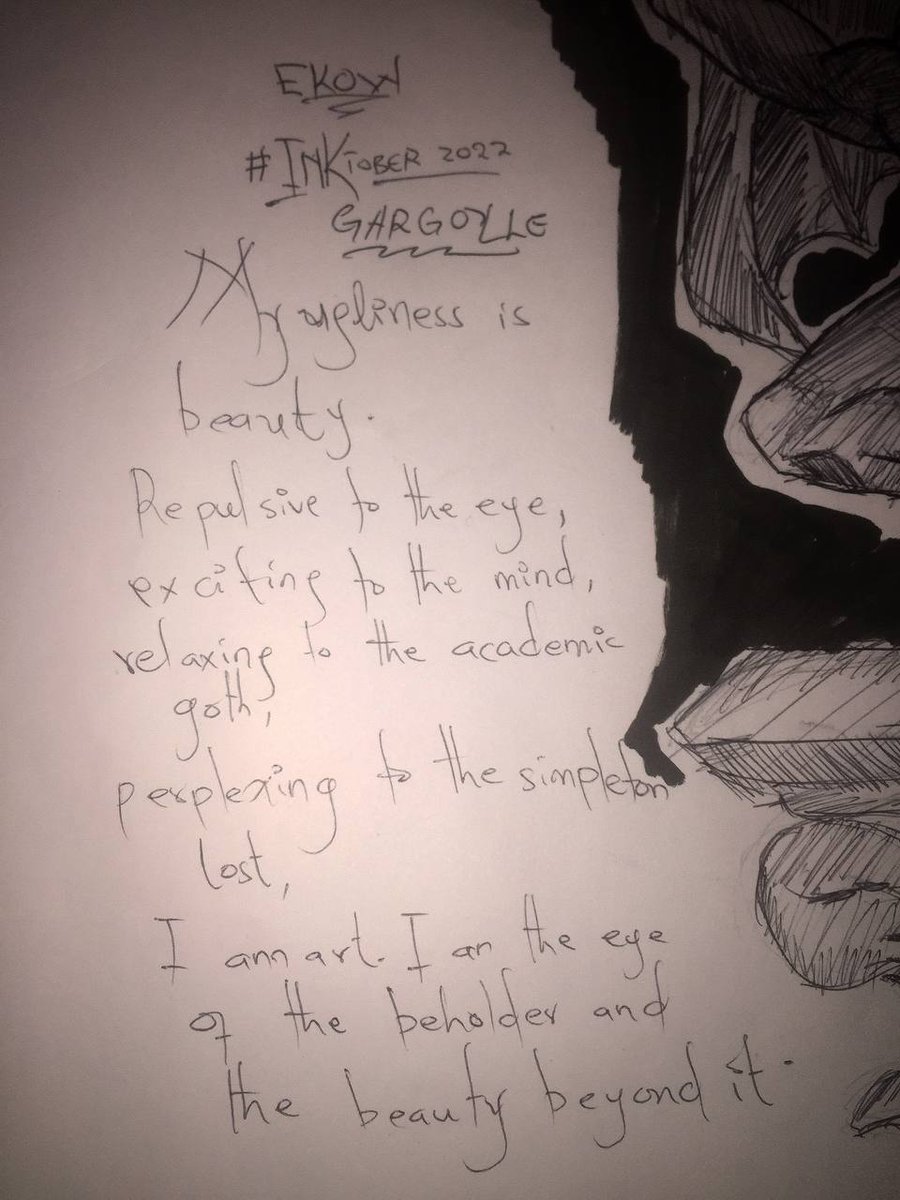 EKOW
#INKTOBER 2022
GARGOYLE
My ugliness is
beauty.
Repulsive to the eye,
exciting to the mind,
relaxing to the academic
goth,
perplexing to the simpleton
lost,
I am art. I am the eye
of the beholder and
the beauty beyond it.